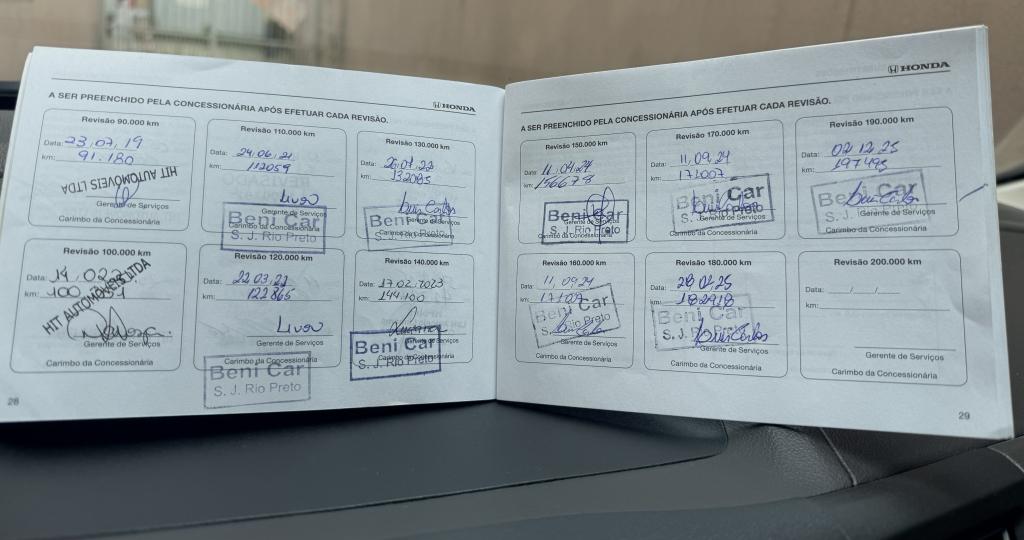 HONDA
A SER PREENCHIDO PELA CONCESSIONÁRIA APÓS EFETUAR CADA REVISÃO.
Revisão 90.000 km
Data: 23,07,19
km: 91.180
HIT AUTOMÓVEIS LTDA
Gerente de Serviços
Carimbo da Concessionária
Revisão 110.000 km
Data: 24.06.21
km: 112059
Gerente de Serviços
Carimbo da Concessionária
Beni Car
S. J. Rio Preto
Revisão 130.000 km
Data:
km: 132085
Gerente de Serviços
Carimbo da Concessionária
Beni Car
S. J. Rio Preto
Revisão 100.000 km
Data: 14.02
km: 100
HIT AUTOMÓVEIS LTDA
Gerente de Serviços
Carimbo da Concessionária
Revisão 120.000 km
Data: 22.03.22
km: 122865
Gerente de Serviços
Carimbo da Concessionária
Beni Car
S. J. Rio Preto
Revisão 140.000 km
Data: 17.02.2023
km: 144.100
Gerente de Serviços
Carimbo da Concessionária
Beni Car
S. J. Rio Preto
28
HONDA
A SER PREENCHIDO PELA CONCESSIONÁRIA APÓS EFETUAR CADA REVISÃO.
Revisão 150.000 km
Data: 11.04.24
km: 156678
Gerente de Serviços
Carimbo da Concessionária
Beni Car
S. J. Rio Preto
Revisão 170.000 km
Data: 11,09,24
km: 171007
Beni Car
S. J. Rio Preto
Gerente de Serviços
Carimbo da Concessionária
Revisão 190.000 km
Data: 02.12.25
km: 197495
Beni Car
Gerente de Serviços
Carimbo da Concessionária
Revisão 160.000 km
Data: 11,09,24
km:
Beni Car
S. J. Rio Preto
Gerente de Serviços
Carimbo da Concessionária
Revisão 180.000 km
Data:
km: 182918
Beni Car
S. J. Rio Preto
Gerente de Serviços
Carimbo da Concessionária
Revisão 200.000 km
Data: __/__/__
km:
Gerente de Serviços
Carimbo da Concessionária
29